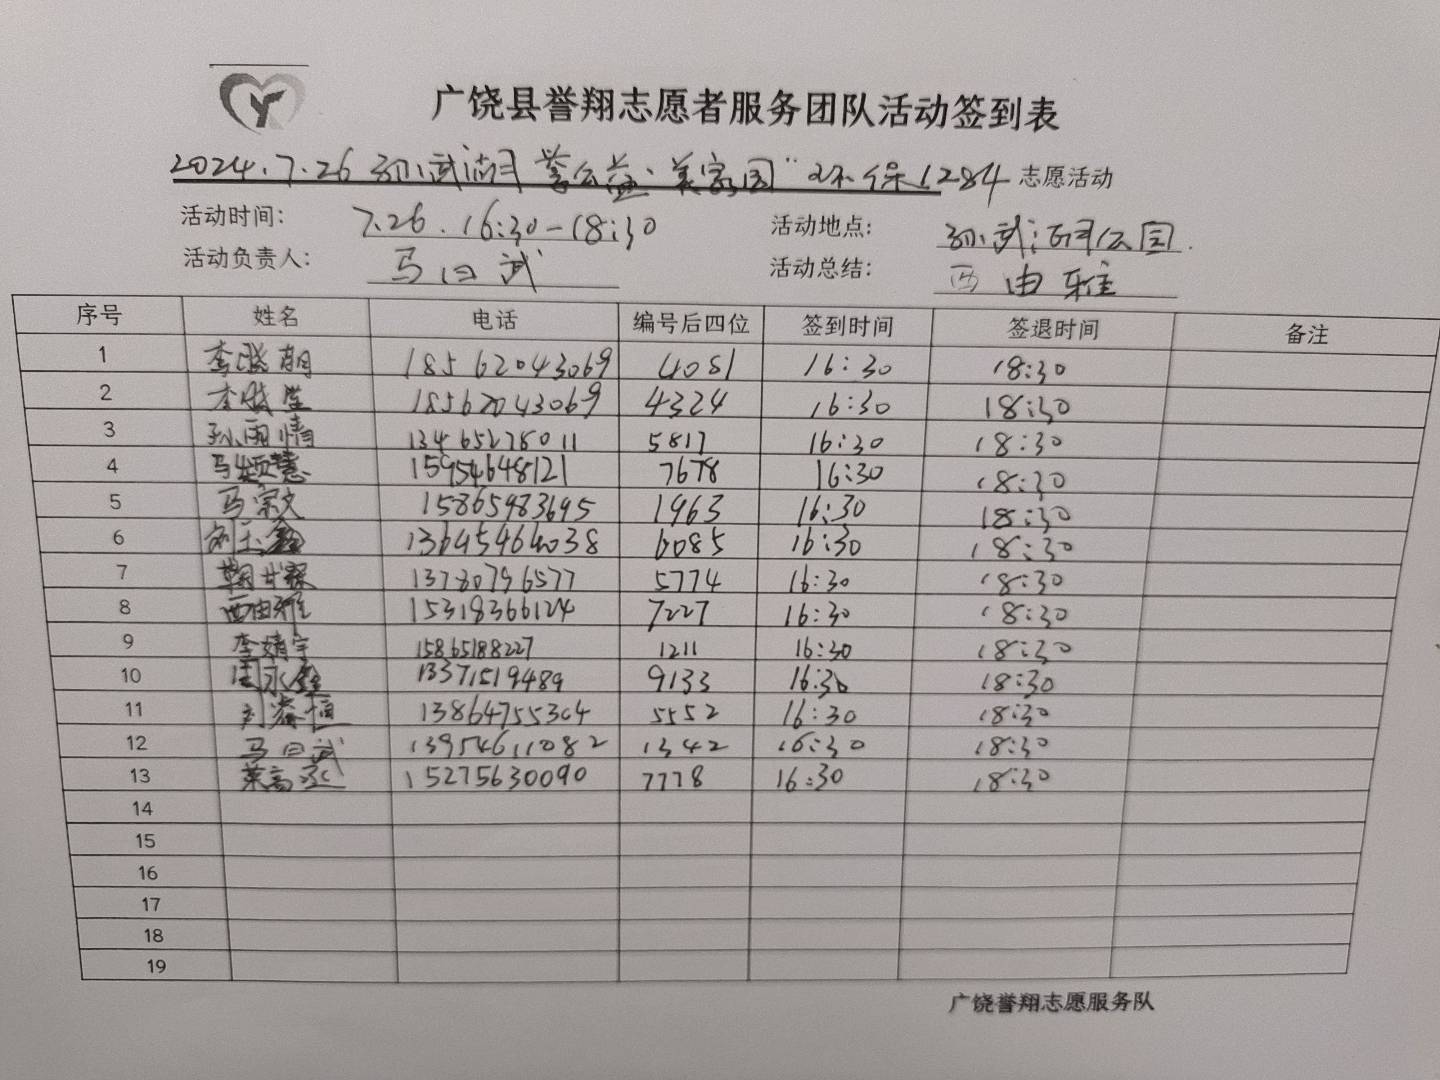 广饶县誉翔志愿者服务团队活动签到表
2024.7.26 孙武湖 誉公益·美家园"环保1284 志愿活动
活动时间： 7.26.16:30-18:30 活动地点： 孙武湖公园.
活动负责人： 马曰武 活动总结： 西由雅
序号 姓名 电话 编号后四位 签到时间 签退时间 备注
1 李晓朝 18562043069 4081 16:30 18:30
2 李 18562043069 4324 16:30 18:30
3 孙雨情 13465278011 5817 16:30 18:30
4 马 慧 15954648121 7678 16:30 18:30
5 马宗文 15865983695 1963 16:30 18:30
6 刘玉鑫 13645464038 6085 16:30 18:30
7 13780796577 5774 16:30 18:30
8 西由雅 15318366124 7227 16:30 18:30
9 李婧宇 15865188227 1211 16:30 18:30
10 周永鑫 13371519489 9133 16:30 18:30
11 刘春恒 13864755304 5552 16:30 18:30
12 马曰武 13954611082 1342 16:30 18:30
13 高 15275630090 7778 16:30 18:30
14
15
16
17
18
19
广饶誉翔志愿服务队